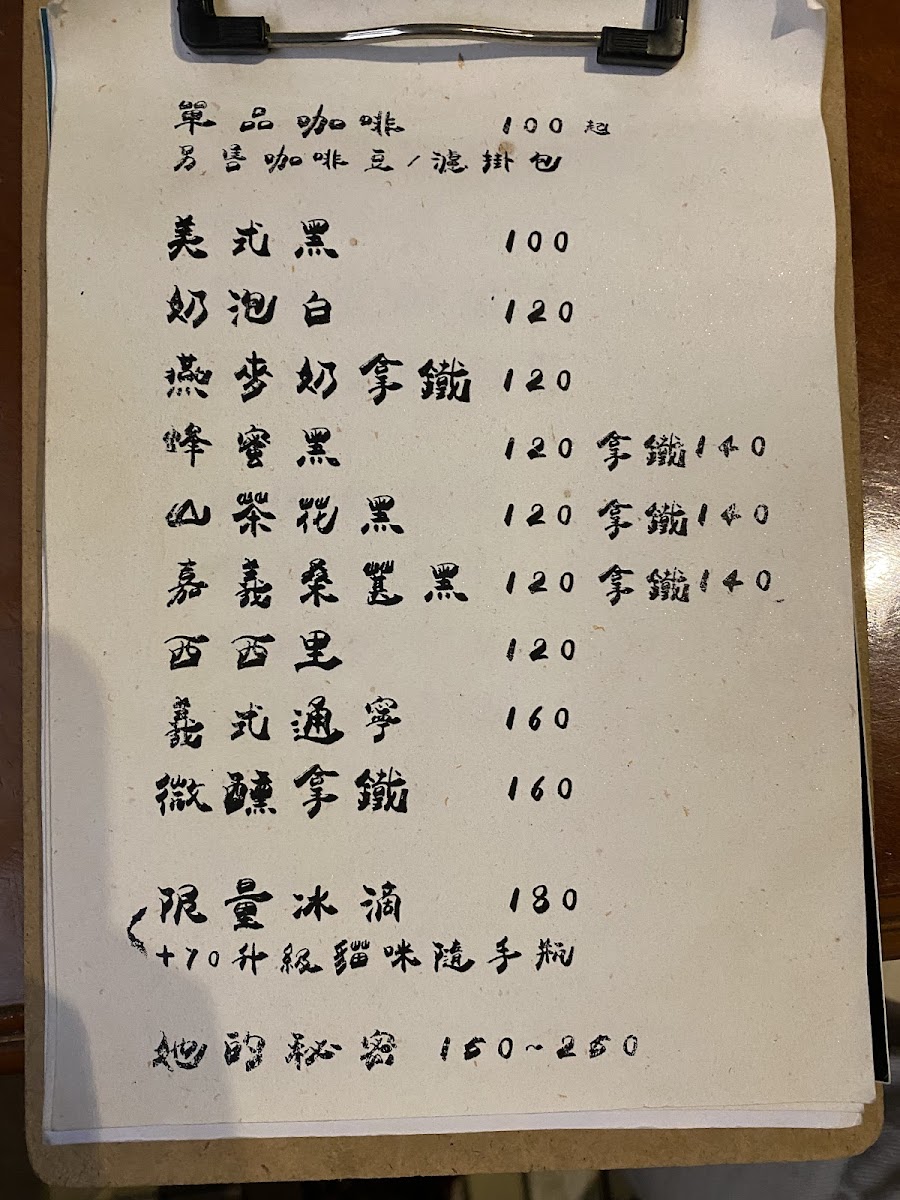 單品咖啡 100起
另售咖啡豆/濾掛包
美式黑 100
奶泡白 120
燕麥奶拿鐵 120
蜂蜜黑 120 拿鐵140
山茶花黑 120 拿鐵140
嘉義桑葚黑 120 拿鐵140
西西里 120
義式通寧 160
微醺拿鐵 160
限量冰滴 180
+70升級貓咪隨手瓶
她的秘密 150~250